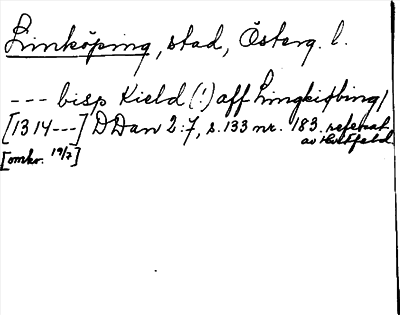 Linköping, stad, Österg. l.
--- bisp Kield (!) aff Lingkiøbing/
[1314---] DDan 2:7, s. 133 nr. 183. referat
av Hvitfeld
[omkr. 19/7]